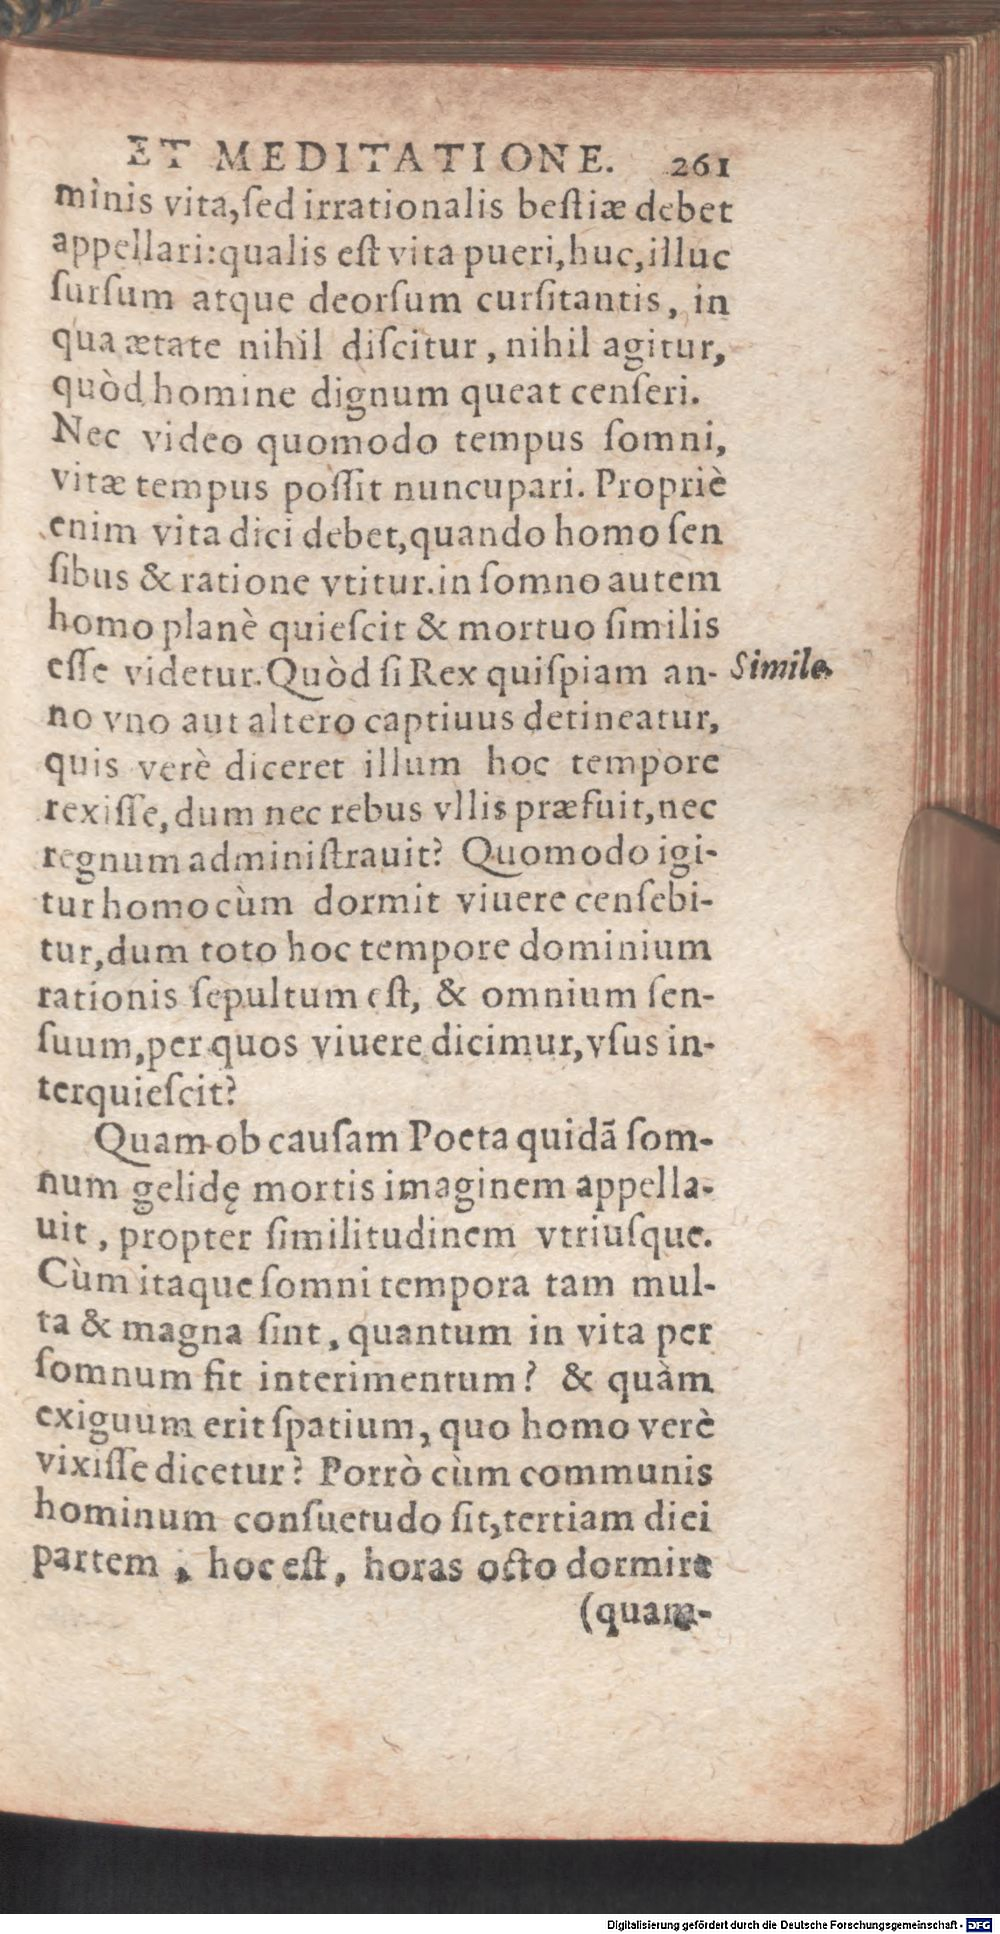 ET MEDITATIONE. 261
minis vita, ſed irrationalis beſtiæ debet
appellari: qualis eſt vita pueri, huc, illuc
ſurſum atque deorſum curſitantis, in
qua ætate nihil diſcitur, nihil agitur,
quòd homine dignum queat cenſeri.
Nec video quomodo tempus ſomni,
vitæ tempus poſſit nuncupari. Propriè
enim vita dici debet, quando homo ſen
ſibus & ratione vtitur. in ſomno autem
homo planè quieſcit & mortuo ſimilis
eſſe videtur. Quòd ſi Rex quiſpiam an-
Simile.
no vno aut altero captiuus detineatur,
quis verè diceret illum hoc tempore
rexiſſe, dum nec rebus vllis præfuit, nec
regnum adminiſtrauit? Quomodo igi-
tur homo cùm dormit viuere cenſebi-
tur, dum toto hoc tempore dominium
rationis ſepultum eſt, & omnium ſen-
ſuum, per quos viuere dicimur, vſus in-
terquieſcit?
Quam ob cauſam Poeta quidã ſom-
num gelidę mortis imaginem appella-
uit, propter ſimilitudinem vtriuſque.
Cùm itaque ſomni tempora tam mul-
ta & magna ſint, quantum in vita per
ſomnum fit interimentum? & quàm
exiguum erit ſpatium, quo homo verè
vixiſſe dicetur? Porrò cùm communis
hominum conſuetudo ſit, tertiam diei
partem, hoc eſt, horas octo dormire
(quam-
Digitalisierung gefördert durch die Deutsche Forschungsgemeinschaft - DFG